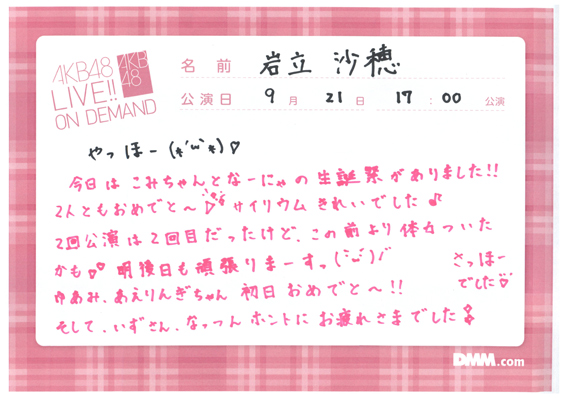 AKB48
LIVE!!
ON DEMAND
AKB
48
名前 岩立 沙穂
公演日 9月 21日 17:00 公演
やっほー(*'ω'*)♡
今日はこみちゃんとなーにゃの生誕祭がありました!!
2人ともおめでと〜 サイリウムきれいでした♪
2回公演は2回目だったけど、この前より体力ついた
かも♡ 明後日も頑張りまーすっ(˙ω˙)/
ゆあみ、あえりんぎちゃん 初日おめでと〜!!
そして、いずさん、なっつんホントにお疲れさまでした
さっほー
でした♡
DMM.com